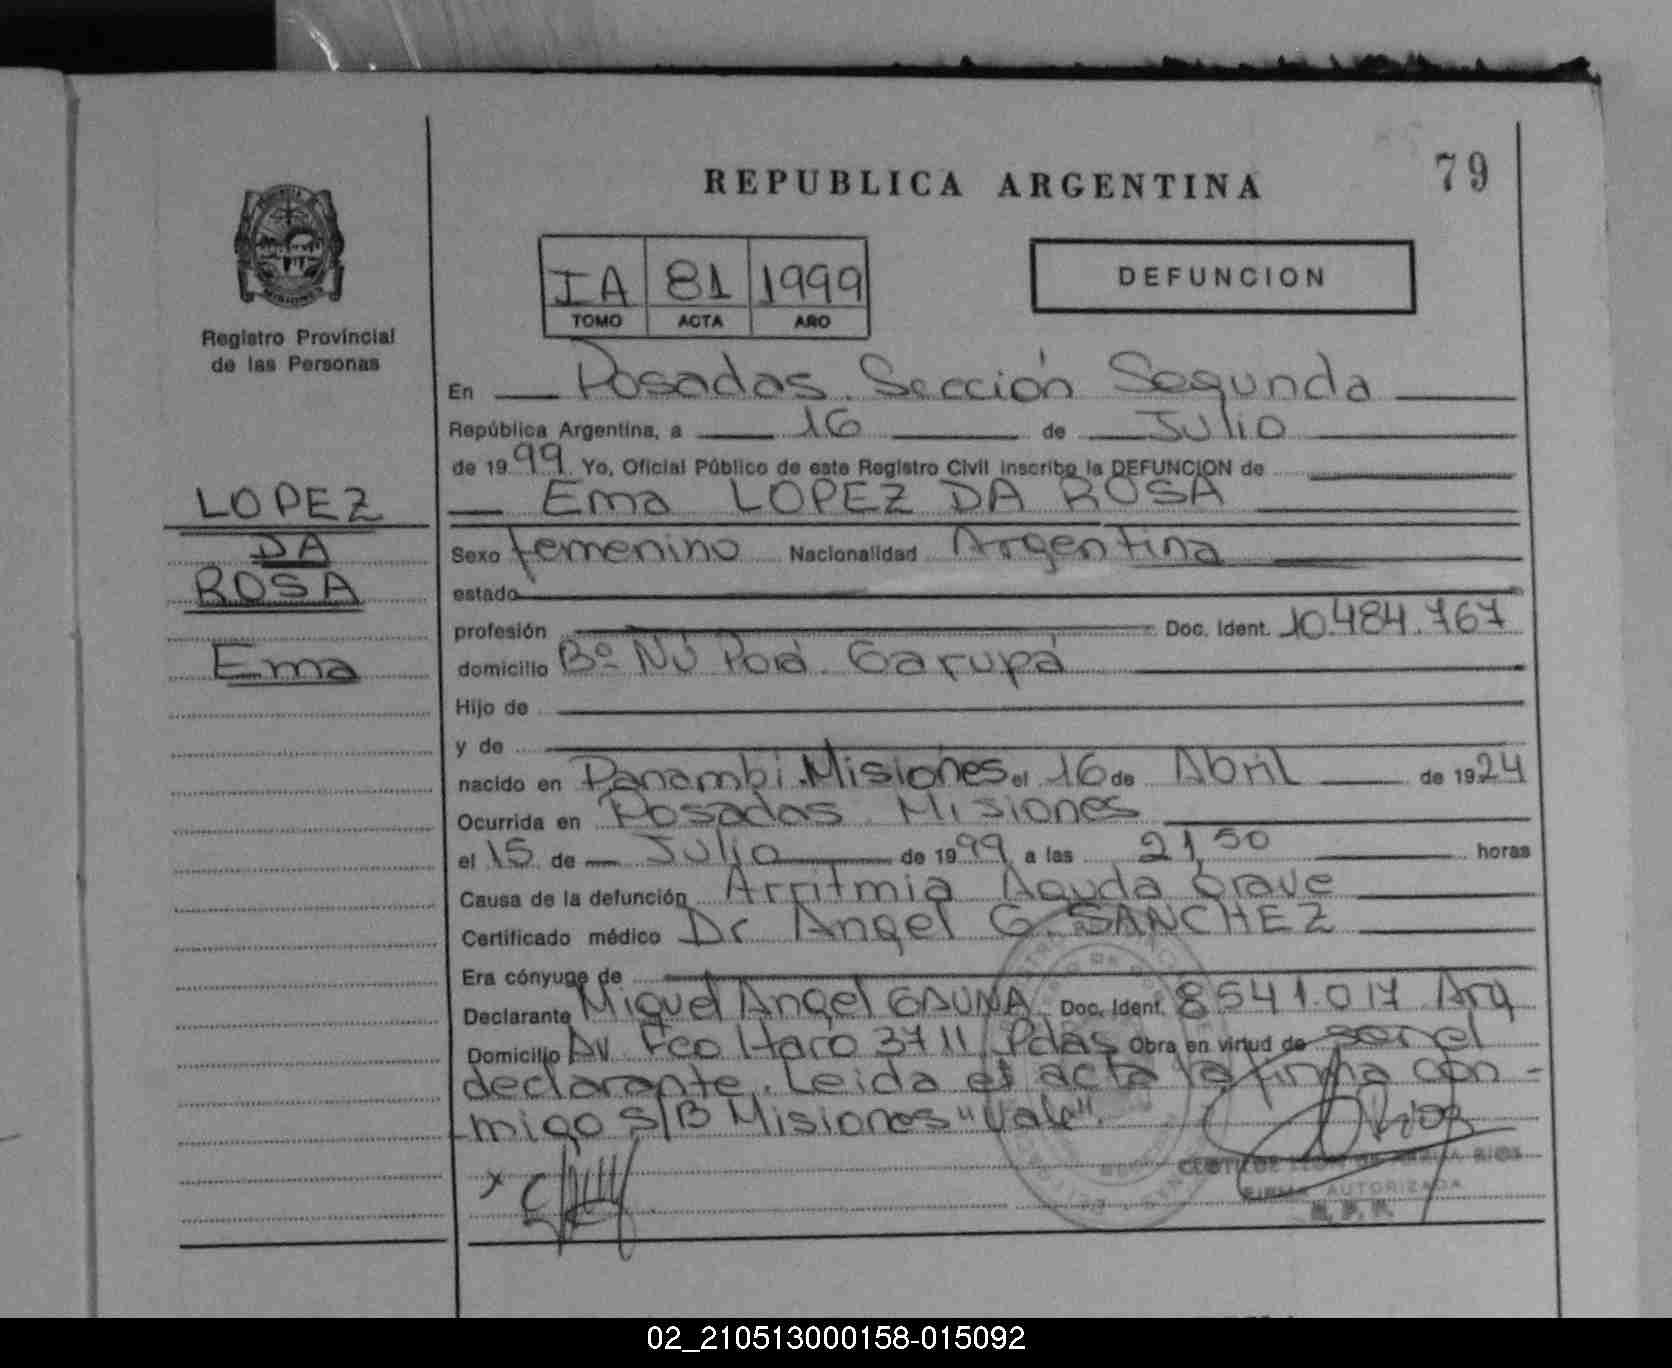 REPUBLICA ARGENTINA
79
IA 81 1999
TOMO ACTA AÑO
DEFUNCION
MISIONES
Registro Provincial
de las Personas
En Posadas. Sección Segunda
República Argentina, a 16 de Julio
de 1999. Yo, Oficial Público de este Registro Civil inscribo la DEFUNCION de
Ema LOPEZ DA ROSA
LOPEZ
DA
ROSA
Ema
Sexo femenino Nacionalidad Argentina
estado
profesión Doc. Ident. 10.484.767
domicilio Bº Ñú Porá. Garupá
Hijo de
y de
nacido en Panambi. Misiones el 16 de Abril de 1924
Ocurrida en Posadas Misiones
el 15 de Julio de 1999 a las 21,50 horas
Causa de la defunción Arritmia Aguda Grave
Certificado médico Dr Angel G. SANCHEZ
Era cónyuge de
Declarante Miguel Angel GAUNA Doc. Ident. 8541.017 Arg
Domicilio Av. Fco Haro 3711 Pdas Obra en virtud de ser el
declarante. Leida el acta la firma con-
migo S/B Misiones "Vale".
x
CLOTILDE RIOS
FIRMA AUTORIZADA
R. P. P.
02_210513000158-015092